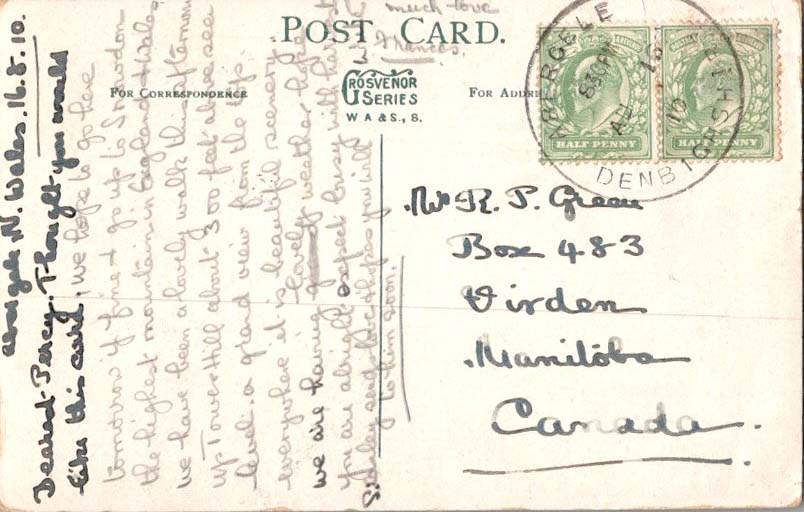 POST CARD.
FOR CORRESPONDENCE
GROSVENOR
SERIES
W A & S., S.
FOR ADDRE
ABERGELE
8 30 PM
AU 16
10
DENBIGHSHIRE
HALF PENNY
HALF PENNY
Mr R. P. Green
Box 483
Virden
Manitoba
Canada.
N. Wales. 16.8.10.
Dearest Percy. Thought you would
like this card, we hope to go here
tomorrow if fine & go up to Snowdon
the highest mountain in England & Wales
we have been a lovely walk this afternoon
up Tower Hill about 300 feet above sea
level. a grand view from the top.
everywhere it is beautiful scenery
we are having lovely weather hope
you are alright expect busy with harvest
Sidley send hopes you will
to him soon.
much love
Frances.